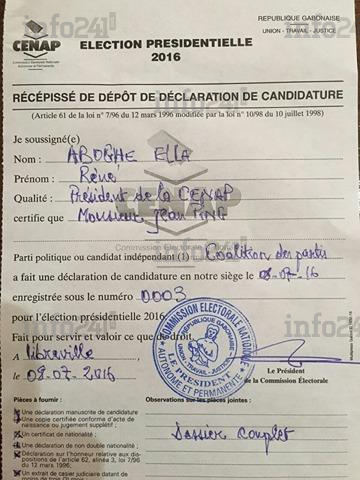 info241
CENAP
Commission Electorale Nationale
Autonome et Permanente
ELECTION PRESIDENTIELLE
2016
REPUBLIQUE GABONAISE
UNION - TRAVAIL - JUSTICE
RÉCÉPISSÉ DE DÉPÔT DE DÉCLARATION DE CANDIDATURE
(Article 61 de la loi n° 7/96 du 12 mars 1996 modifiée par la loi n° 10/98 du 10 juillet 1998)
Je soussigné(e)
Nom : ABOGHE ELLA
Prénom : René
Qualité : Président de la CENAP
certifie que Monsieur Jean PING
CENAP
Parti politique ou candidat indépendant (1) Coalition des partis
a fait une déclaration de candidature en notre siège le 08-07-16
enregistrée sous le numéro 0003
pour l'élection présidentielle 2016
Fait pour servir et valoir ce que de droit.
A Libreville
le 08-07-2016
COMMISSION ELECTORALE NATIONALE
AUTONOME ET PERMANENTE
REPUBLIQUE GABONAISE
UNION - TRAVAIL - JUSTICE
LE PRESIDENT
info241
Le Président
de la Commission Électorale
Pièces à fournir :
Observations sur les pièces jointes :
Une déclaration manuscrite de candidature
Une copie certifiée conforme d'acte de
naissance ou jugement supplétif ;
Un certificat de nationalité ;
Une déclaration de non double nationalité ;
Déclaration sur l'honneur relative aux dis-
positions de l'article 62, alinéa 3, loi 7/96
du 12 mars 1996;
Un extrait de casier judiciaire datant de
Dossier Complet